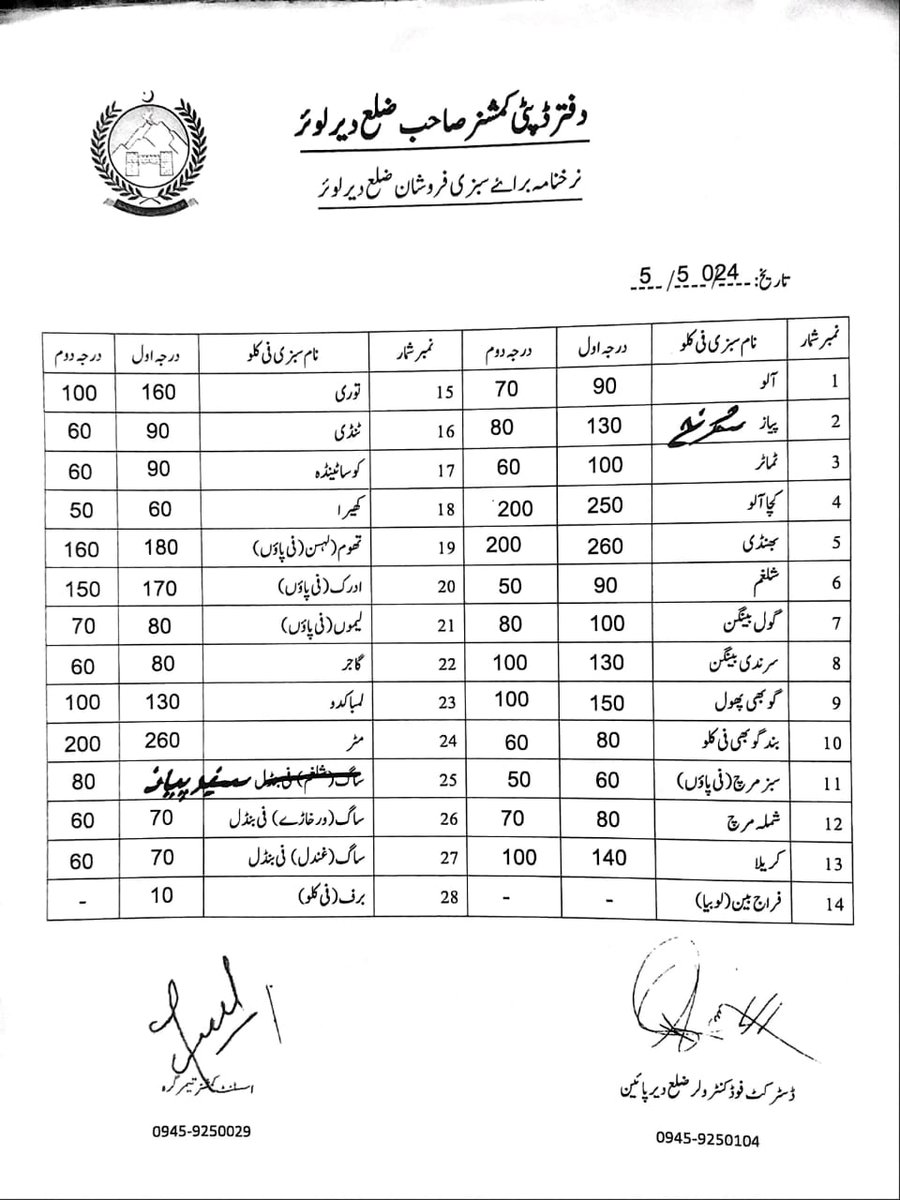 دفتر ڈپٹی کمشنر صاحب ضلع دیر لوئر
نرخنامہ برائے سبزی فروشان ضلع دیر لوئر
تاریخ: 5/5 024
نمبر شمار نام سبزی فی کلو درجہ اول درجہ دوم نمبر شمار نام سبزی فی کلو درجہ اول درجہ دوم
1 آلو 90 70 15 توری 160 100
2 پیاز سرخ 130 80 16 ٹنڈی 90 60
3 ٹماٹر 100 60 17 کوسا ٹینڈہ 90 60
4 کچا آلو 250 200 18 کھیرا 60 50
5 بھنڈی 260 200 19 تھوم (لہسن) (فی پاؤں) 180 160
6 شلغم 90 50 20 ادرک (فی پاؤں) 170 150
7 گول بینگن 100 80 21 لیموں (فی پاؤں) 80 70
8 سرندی بینگن 130 100 22 گاجر 80 60
9 گوبھی پھول 150 100 23 لمبا کدو 130 100
10 بند گوبھی فی کلو 80 60 24 مٹر 260 200
11 سبز مرچ (فی پاؤں) 60 50 25 ساگ (شلغم) فی بنڈل سفید پیاز 80
12 شملہ مرچ 80 70 26 ساگ (ورخاڑے) فی بنڈل 70 60
13 کریلا 140 100 27 ساگ (غندل) فی بنڈل 70 60
14 فراج بین (لوبیا) - - 28 برف (فی کلو) 10 -
ڈسٹرکٹ فوڈ کنٹرولر ضلع دیر پائین
0945-9250104
اسسٹنٹ کمشنر تیمرگرہ
0945-9250029